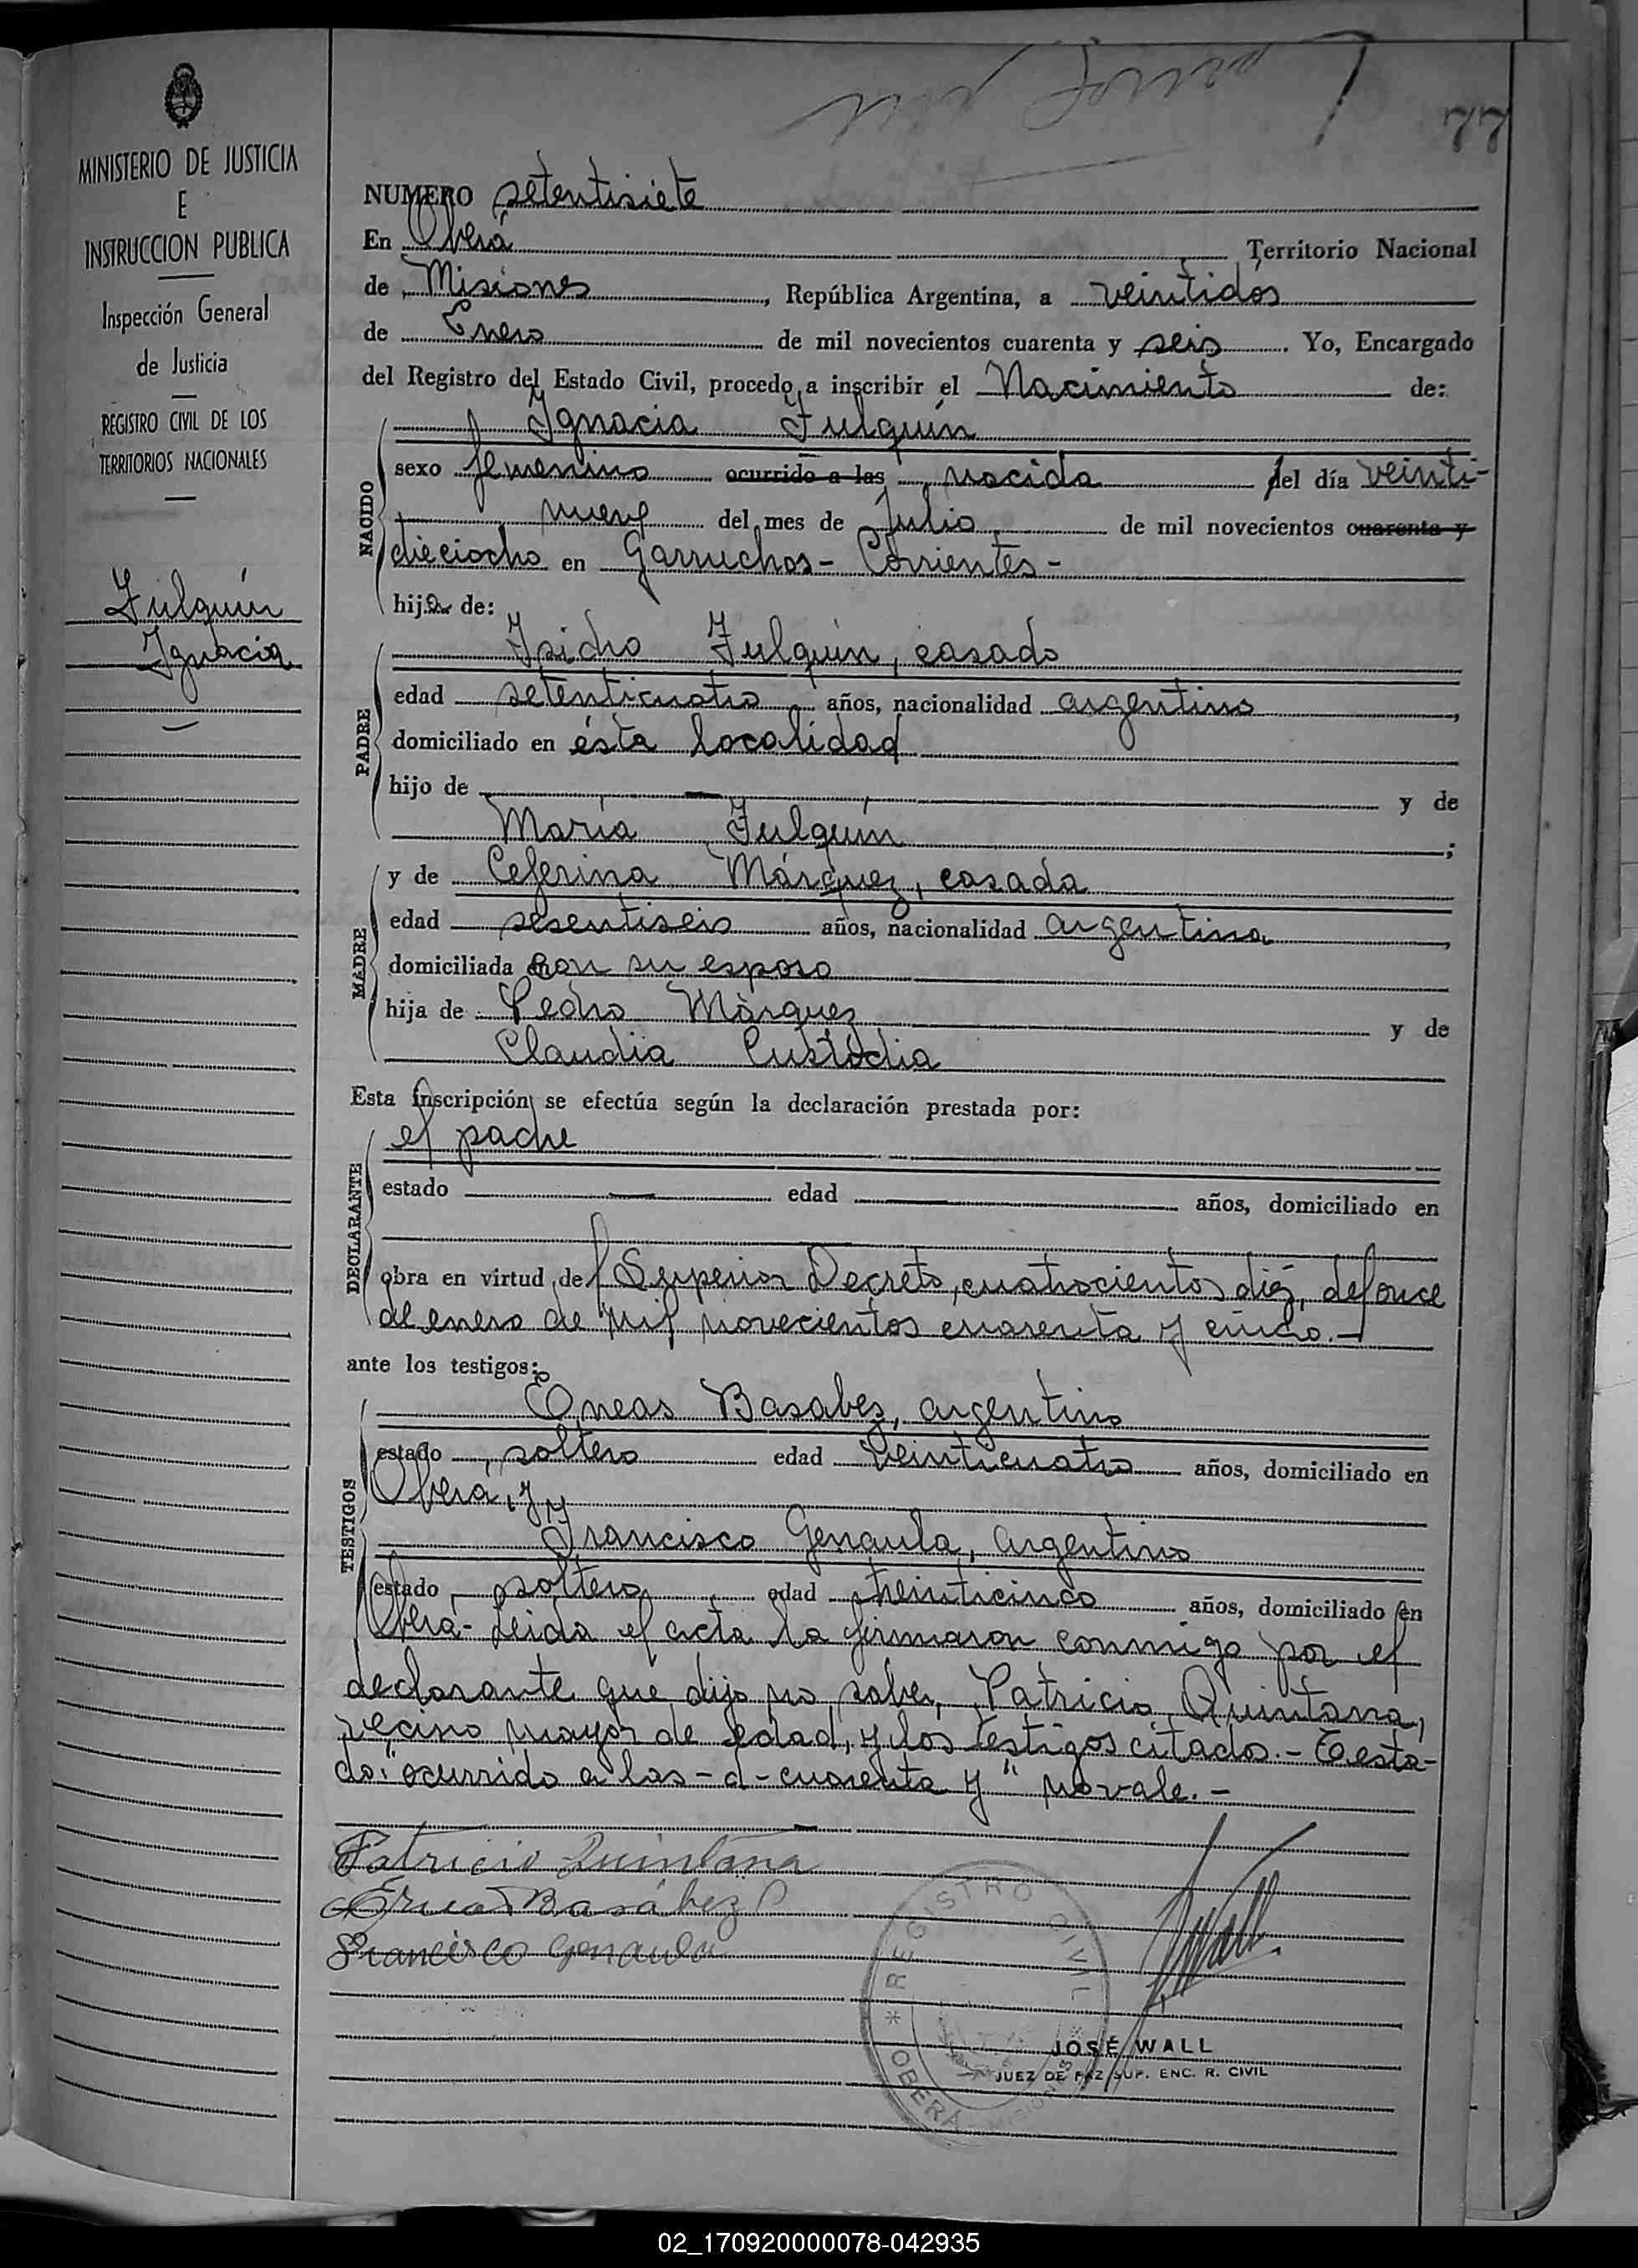 77
MINISTERIO DE JUSTICIA
E
INSTRUCCION PUBLICA
Inspección General
de Justicia
REGISTRO CIVIL DE LOS
TERRITORIOS NACIONALES
Fulquín
Ignacia
NUMERO setentisiete
En Oberá Territorio Nacional
de Misiones, República Argentina, a veintidós
de Enero de mil novecientos cuarenta y seis. Yo, Encargado
del Registro del Estado Civil, procedo a inscribir el Nacimiento de:
NACIDO
Ignacia Fulquín
sexo femenino ocurrido a las nacida del día veinti-
nueve del mes de Julio de mil novecientos cuarenta y
dieciocho en Garruchos - Corrientes -
hija de:
PADRE
Isidro Fulquín, casado
edad setenticuatro años, nacionalidad argentino,
domiciliado en ésta localidad
hijo de — y de
María Fulquín;
MADRE
y de Ceferina Márquez, casada
edad sesentiseis años, nacionalidad argentina,
domiciliada con su esposo
hija de Pedro Márquez y de
Claudia Custodia
Esta inscripción se efectúa según la declaración prestada por:
DECLARANTE
el padre
estado — edad — años, domiciliado en
obra en virtud del Superior Decreto, cuatrocientos diéz, del once
de enero de mil novecientos cuarenta y cinco.-
ante los testigos:
TESTIGOS
Eneas Basabez, argentino
estado soltero edad veinticuatro años, domiciliado en
Oberá, y
Francisco Genaula, argentino
estado soltero edad treinticinco años, domiciliado en
Oberá- Leida el acta la firmaron conmigo por el
declarante que dijo no saber, Patricio Quintana,
vecino mayor de edad, y los testigos citado.- Testa-
do: "ocurrido a las - d - cuarenta y" no vale.-
Patricio Quintana
Eneas Basábez
Francisco Genaula
JWall
REGISTRO CIVIL
* OBERÁ - MISIONES *
JOSÉ WALL
JUEZ DE PAZ SUP. ENC. R. CIVIL
02_170920000078-042935